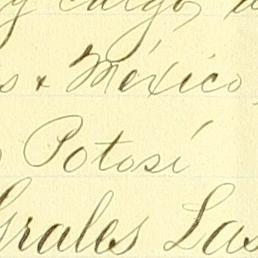 y cargo,
s & México
Potosí
Grales Las